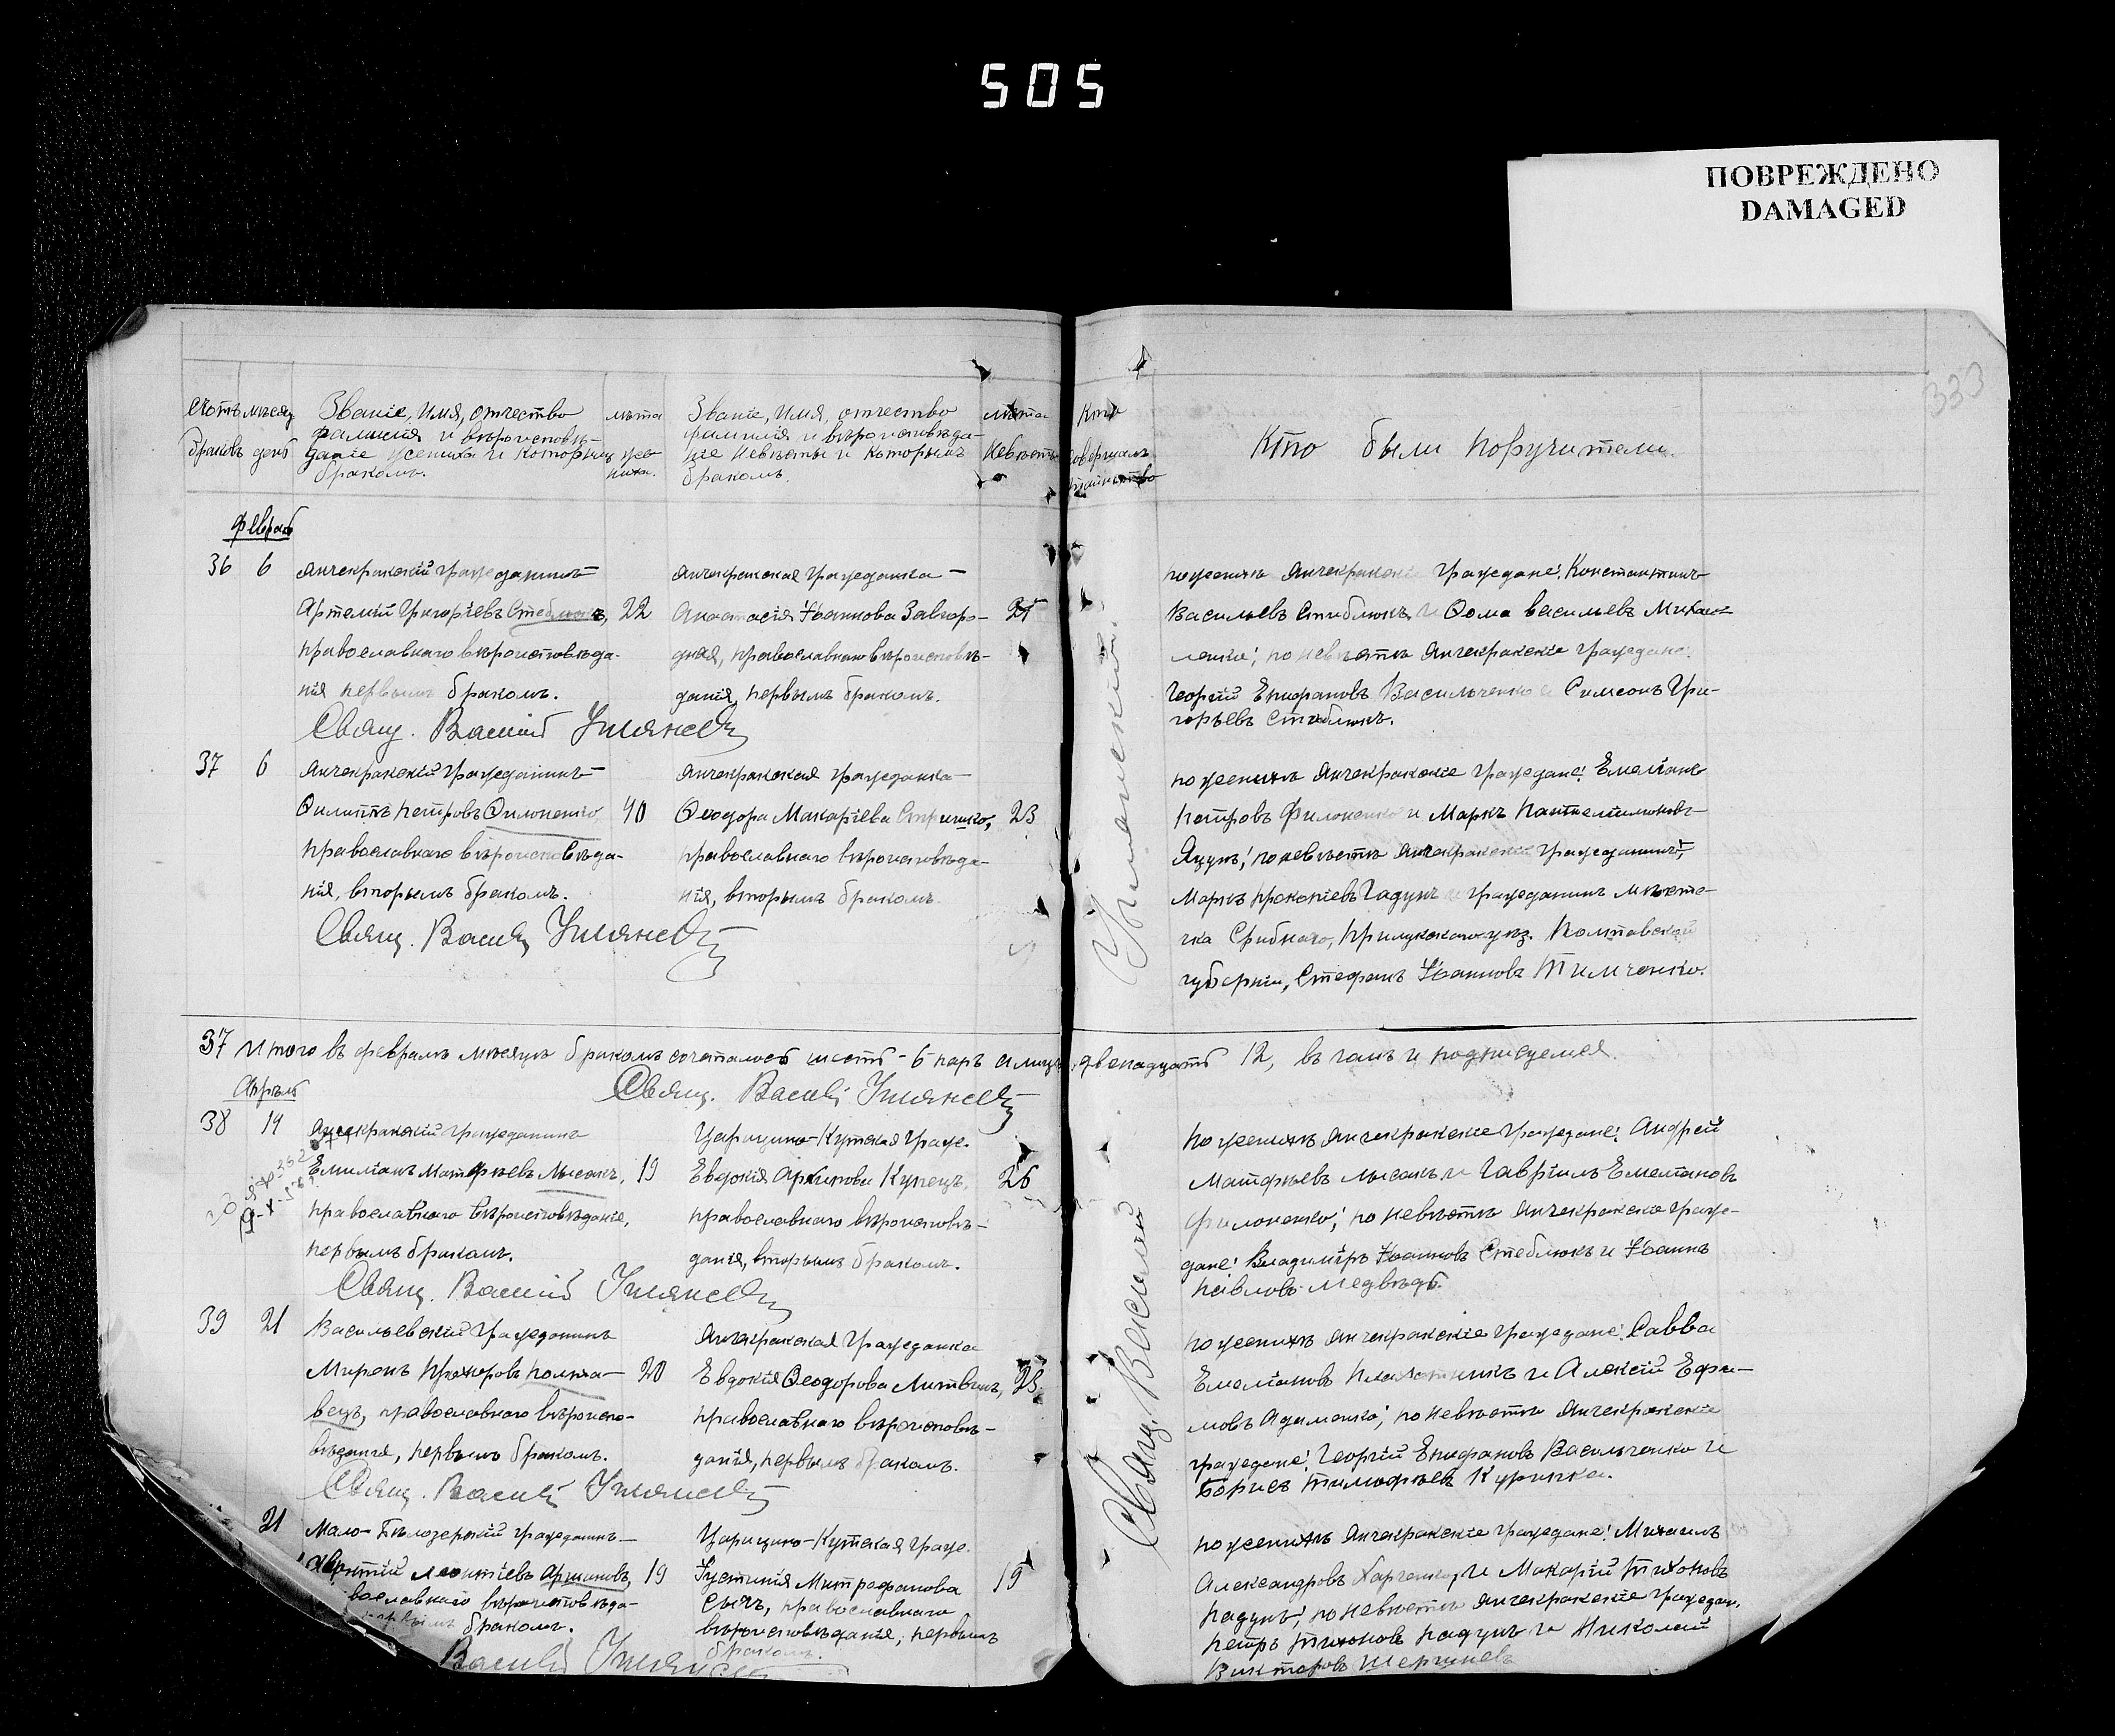 505
ПОВРЕЖДЕНО
DAMAGED
330
Счотъ браковъ
мѣсяц день
Званіе, Имя, отчество
фамилія и вѣроисповѣ-
даніе жениха и которымъ
бракомъ.
лѣта
жениха.
Званіе, Имя, отчество
фамилія и вѣроисповѣда-
ніе Невѣсты и которымъ
бракомъ.
лѣта
Невѣсты
Кто
совершалъ
таинство
Кто были поручители.
Февраль
36 6
Янчекракскій гражданинъ
Артемій Григоріевъ Стеблюкъ, 22
православнаго вѣроисповѣда-
нія первымъ бракомъ.
Янчекракская гражданка
Анастасія Іоаннова Завгоро- 21
дная, православнаго вѣроисповѣ-
данія, первымъ бракомъ.
Свящ. Василій
по женихѣ Янчекракскіе граждане: Константинъ
Васильевъ Стеблюкъ и Ѳома Васильевъ Михай-
ленко; по невѣстѣ Янчекракскіе граждане:
Георгій Епифановъ Васильченко и Симеонъ Гри-
горьевъ Стеблюкъ.
37 6
Янчекракскій гражданинъ
Филиппъ Петровъ Филоненко 40
православнаго вѣроисповѣда-
нія, вторымъ бракомъ.
Янчекракская гражданка
Ѳеодора Макаріева 23
православнаго вѣроисповѣда-
нія, вторымъ бракомъ.
Свящ. Василій
по женихѣ Янчекракскіе граждане: Емеліанъ
Петровъ Филоненко и Маркъ Пантелимоновъ
Яцунъ; по невѣстѣ Янчекракскіе гражданинъ,
Маркъ Прокопіевъ Гадунъ и гражданинъ мѣсте-
чка Срибнаго, Прилукскаго уѣз. Полтавской
губерніи, Стефанъ Іоанновъ Тимченко.
37 Итого въ февралѣ мѣсяцѣ бракомъ сочеталось шесть - 6 паръ а лицъ двенадцать 12, въ чемъ и подписуемся.
Свящ. Василій
Апрѣль
38 14
Янчекракскій гражданинъ
Емиліанъ Матфѣевъ Лысакъ, 19
православнаго вѣроисповѣданіе,
первымъ бракомъ.
Царицыно-Кутская граж.
Евдокія Архипова Купецъ, 26
православнаго вѣроисповѣ-
данія, вторымъ бракомъ.
Свящ. Василій
по женихѣ Янчекракскіе граждане: Андрей
Матфѣевъ Лысакъ и Гавріилъ Емеліановъ
Филоненко; по невѣстѣ Янчекракскіе граж-
дане: Владиміръ Іоанновъ Стеблюкъ и Іоаннъ
Павловъ Медвѣдь.
39 21
Васильевскій гражданинъ
Миронъ Прохоровъ Полта- 20
вецъ, православнаго вѣроиспо-
вѣданія, первымъ бракомъ.
Янчекракская гражданка
Евдокія Ѳеодорова Литвинъ, 23
православнаго вѣроисповѣ-
данія, первымъ бракомъ.
Свящ. Василій
по женихѣ Янчекракскіе граждане: Савва
Емеліановъ Плахотникъ и Алексій Ефи-
мовъ Адаменко; по невѣстѣ Янчекракскіе
граждане: Георгій Епифановъ Васильченко и
Борисъ Тимофѣевъ Курипка.
21
Мало-Бѣлозерскій гражданинъ
Леонтіевъ Аршиновъ, 19
вославнаго вѣроисповѣда-
первымъ бракомъ.
Царицыно-Кутская граж.
Іустинія Митрофанова 19
Сычъ, православнаго
вѣроисповѣданія, первымъ
бракомъ.
Василій
по женихѣ Янчекракскіе граждане: Михаилъ
Александровъ Харченко, и Макарій Тихоновъ
Падунъ; по невѣстѣ Янчекракскіе граждан.
Петръ Тихоновъ Падунъ и Николай
Викторовъ
Свящ. Василій